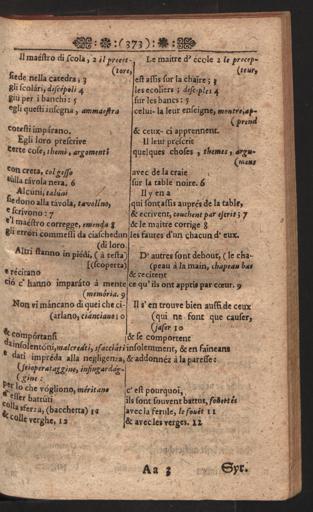 (373)
Il maéstro di scola, 2 il precet-
(tore,
siede nella catedra; 3
gli scolári, discépoli 4
giù per i banchi: 5
egli questi insegna, ammaestra
cotesti impárano.
Egli loro prescrive
certe cose, themi, argomenti
con creta, col gesso
sulla távola nera. 6
Alcúni, talúni
siedono alla távola, tavolíno,
e scrivono: 7
e'l maéstro corregge, emenda 8
gli errori commessi da ciaschedun
(di loro.
Altri stanno in piédi, (à testa)
[(scoperta)
e récitano
ciò c' hanno imparáto à mente
(memória. 9
Non vi máncano di quei che ci-
(arlano, cianciano: 10
& compórtansi
da insolentóni, malcreáti, sfacciáti
e dati in préda alla negligenza,
(gine:
per lo che vógliono, méritano
d'esser battúti
colla sferza, (bacchetta) 11
& colle verghe, 12
Le maitre d' ecole 2 le precep-
(teur,
est assis sur la chaire; 3
les ecoliers; desciples 4
sur les bancs: 5
celui-la leur enseigne, montre, ap-
(prend
& ceux-ci apprennent.
Il leur prescrit
quelques choses, themes, argu-
(mens
avec de la craie
sur la table noire. 6
Il y en a
qui sont assis auprés de la table,
& ecrivent, couchent par ecrit; 7
& le maitre corrige 8
les fautes d'un chacun d' eux.
D' autres sont debout, (le cha-
(peau à la main, chapeau bas
& recitent
ce qu' ils ont appris par cœur. 9
Il s'en trouve bien aussi de ceux
(qui ne font que causer,
(jaser 10
& se comportent
insolemment, & en faineans
& addonnéz à la paresse:
c'est pourquoi,
ils sont souvent battus, foüettés
avec la ferule, le foüët 11
& avec les verges. 12
Aa 3
Syr.